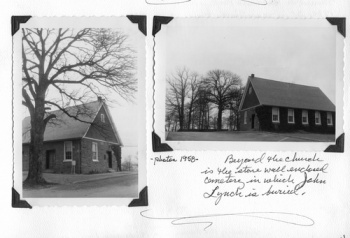 -photos 1958-
Beyond the church
is the stone wall enclosed
cemetery in which John
Lynch is buried.